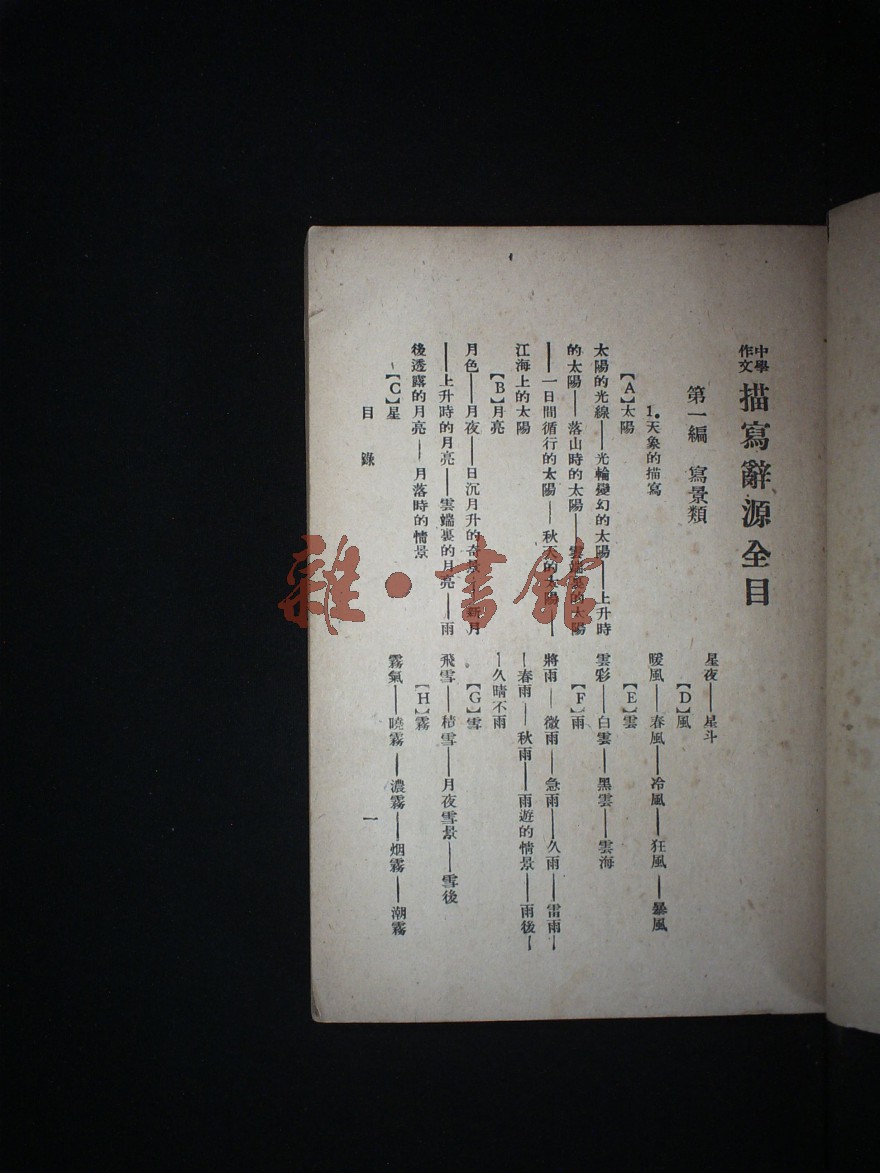 中學
作文
描寫辭源全目
第一編 寫景類
1. 天象的描寫
【A】太陽
太陽的光線——光輪變幻的太陽——上升時
的太陽——落山時的太陽——雲端裏的太陽
——一日間循行的太陽——秋天的太陽——
江海上的太陽
【B】月亮
月色——月夜——日沉月升的奇景——新月
——上升時的月亮——雲端裏的月亮——雨
後透露的月亮——月落時的情景
【C】星
星夜——星斗
【D】風
暖風——春風——冷風——狂風——暴風
【E】雲
雲彩——白雲——黑雲——雲海
【F】雨
將雨——微雨——急雨——久雨——雷雨——
——春雨——秋雨——雨遊的情景——雨後——
——久晴不雨
【G】雪
飛雪——積雪——月夜雪景——雪後
【H】霧
霧氣——曉霧——濃霧——烟霧——潮霧
目錄
一
雜·書館